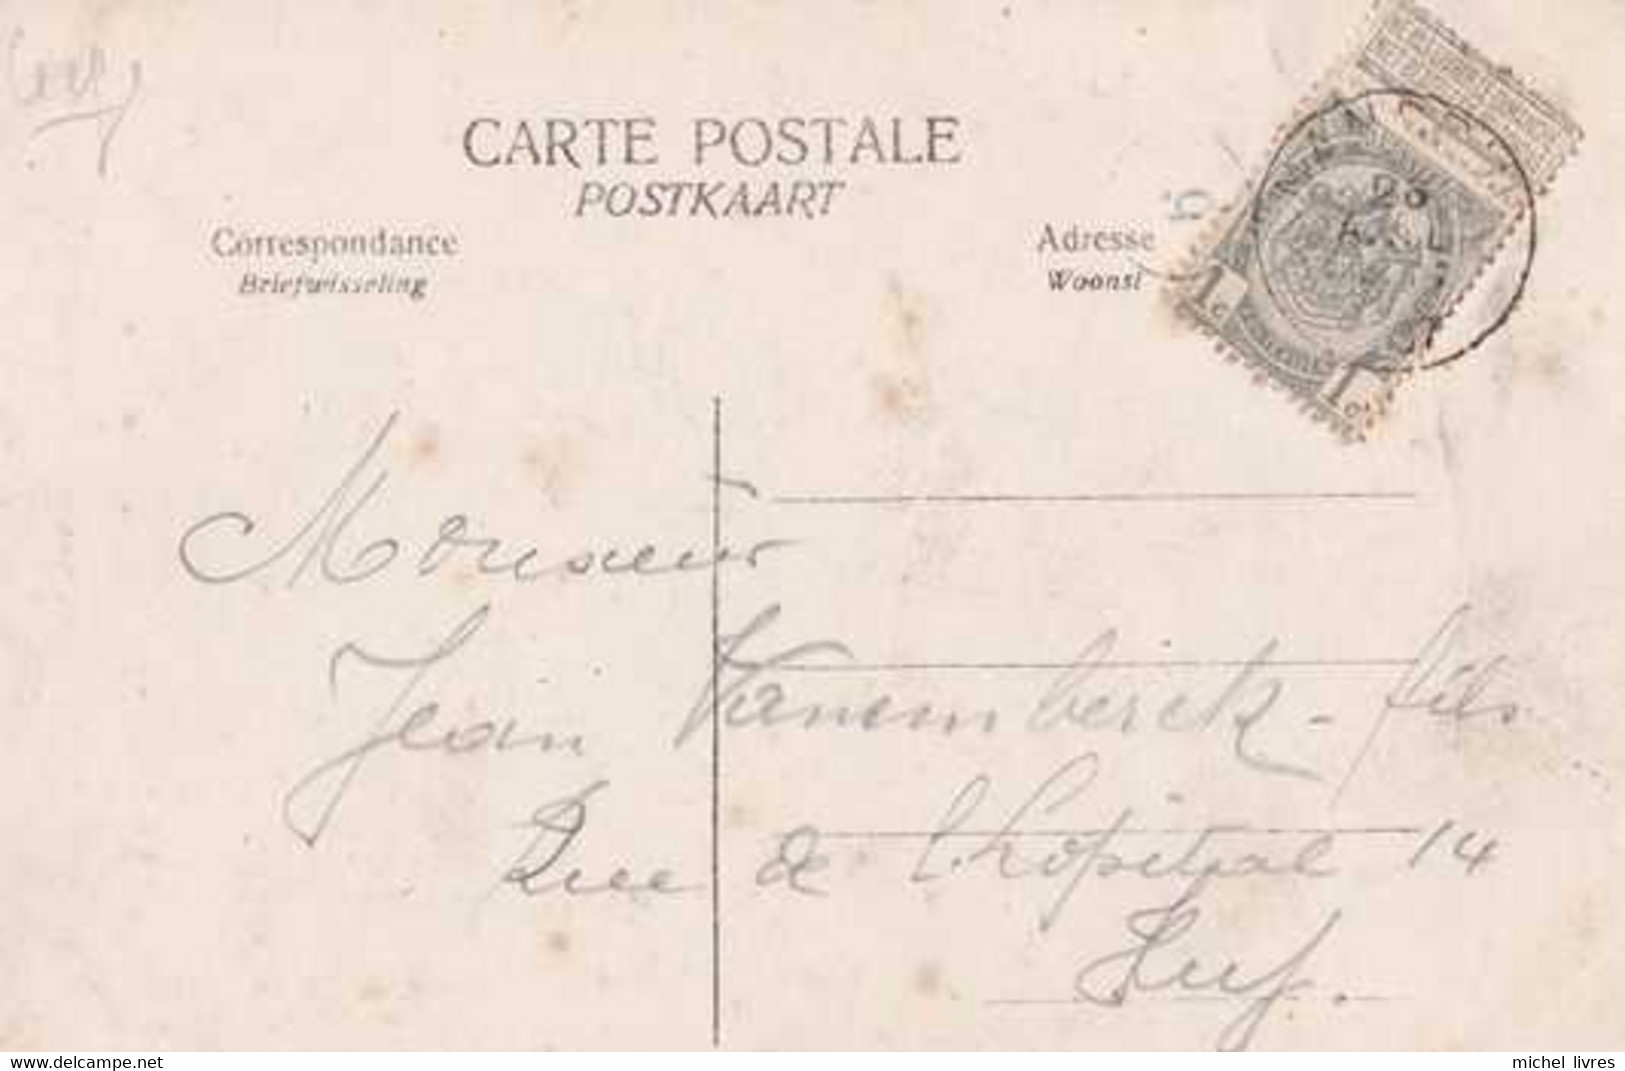 CARTE POSTALE
POSTKAART
Correspondance
Briefwisseling
Adresse
Woonst
1c
1c
Monsieur
Jean Vanemberck - fils
Rue de l'hopital 14
Huy.
delcampe.net
michel_livres